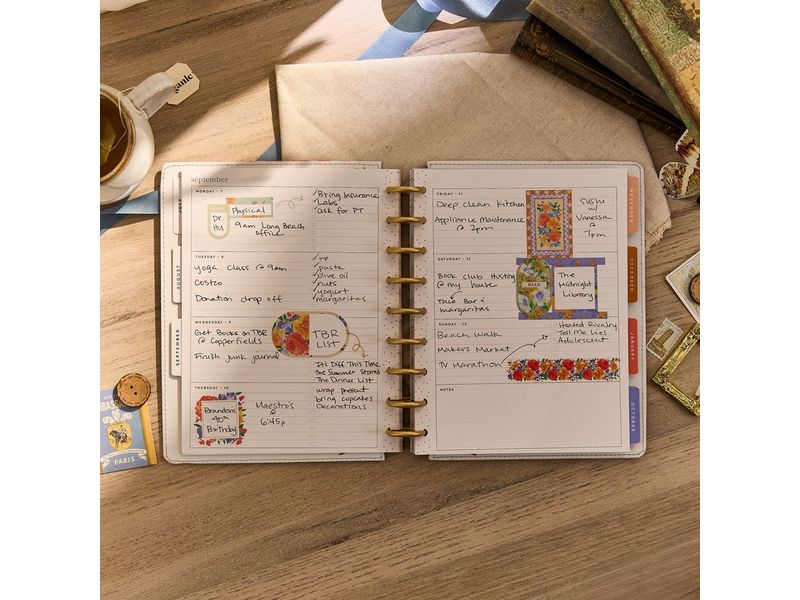 ganic
september
MONDAY • 7
Physical
Dr.
Hu
9am Long Beach
office
✓Bring Insurance
✓Labs
✓ask for PT
TUESDAY • 8
yoga class @ 9am
Costco
Donation drop off
✓TP
✓pasta
✓olive oil
✓nuts
✓yogurt
✓margaritas
WEDNESDAY • 9
Get Books on TBR
@ Copperfields
Finish junk journal
TBR
LIST
It's Diff. This Time
The Summer Storms
The Dinner List
THURSDAY • 10
Brandon's
40th
Birthday
Maestro's
@
6:45p
wrap present
bring cupcakes
Decorations
JULY
AUGUST
SEPTEMBER
FRIDAY • 11
Deep clean kitchen
Appliance Maintenance
@ 2pm
Sushi
w/
Vanessa
@
7pm
SATURDAY • 12
Book club Hosting
@ my house
Taco Bar &
margaritas
READ
The
Midnight
Library
SUNDAY • 13
Beach walk
Makers Market
TV Marathon
Heated Rivalry
Tell Me Lies
Adolescent
NOTES
NOVEMBER
DECEMBER
JANUARY
OCTOBER
PARIS